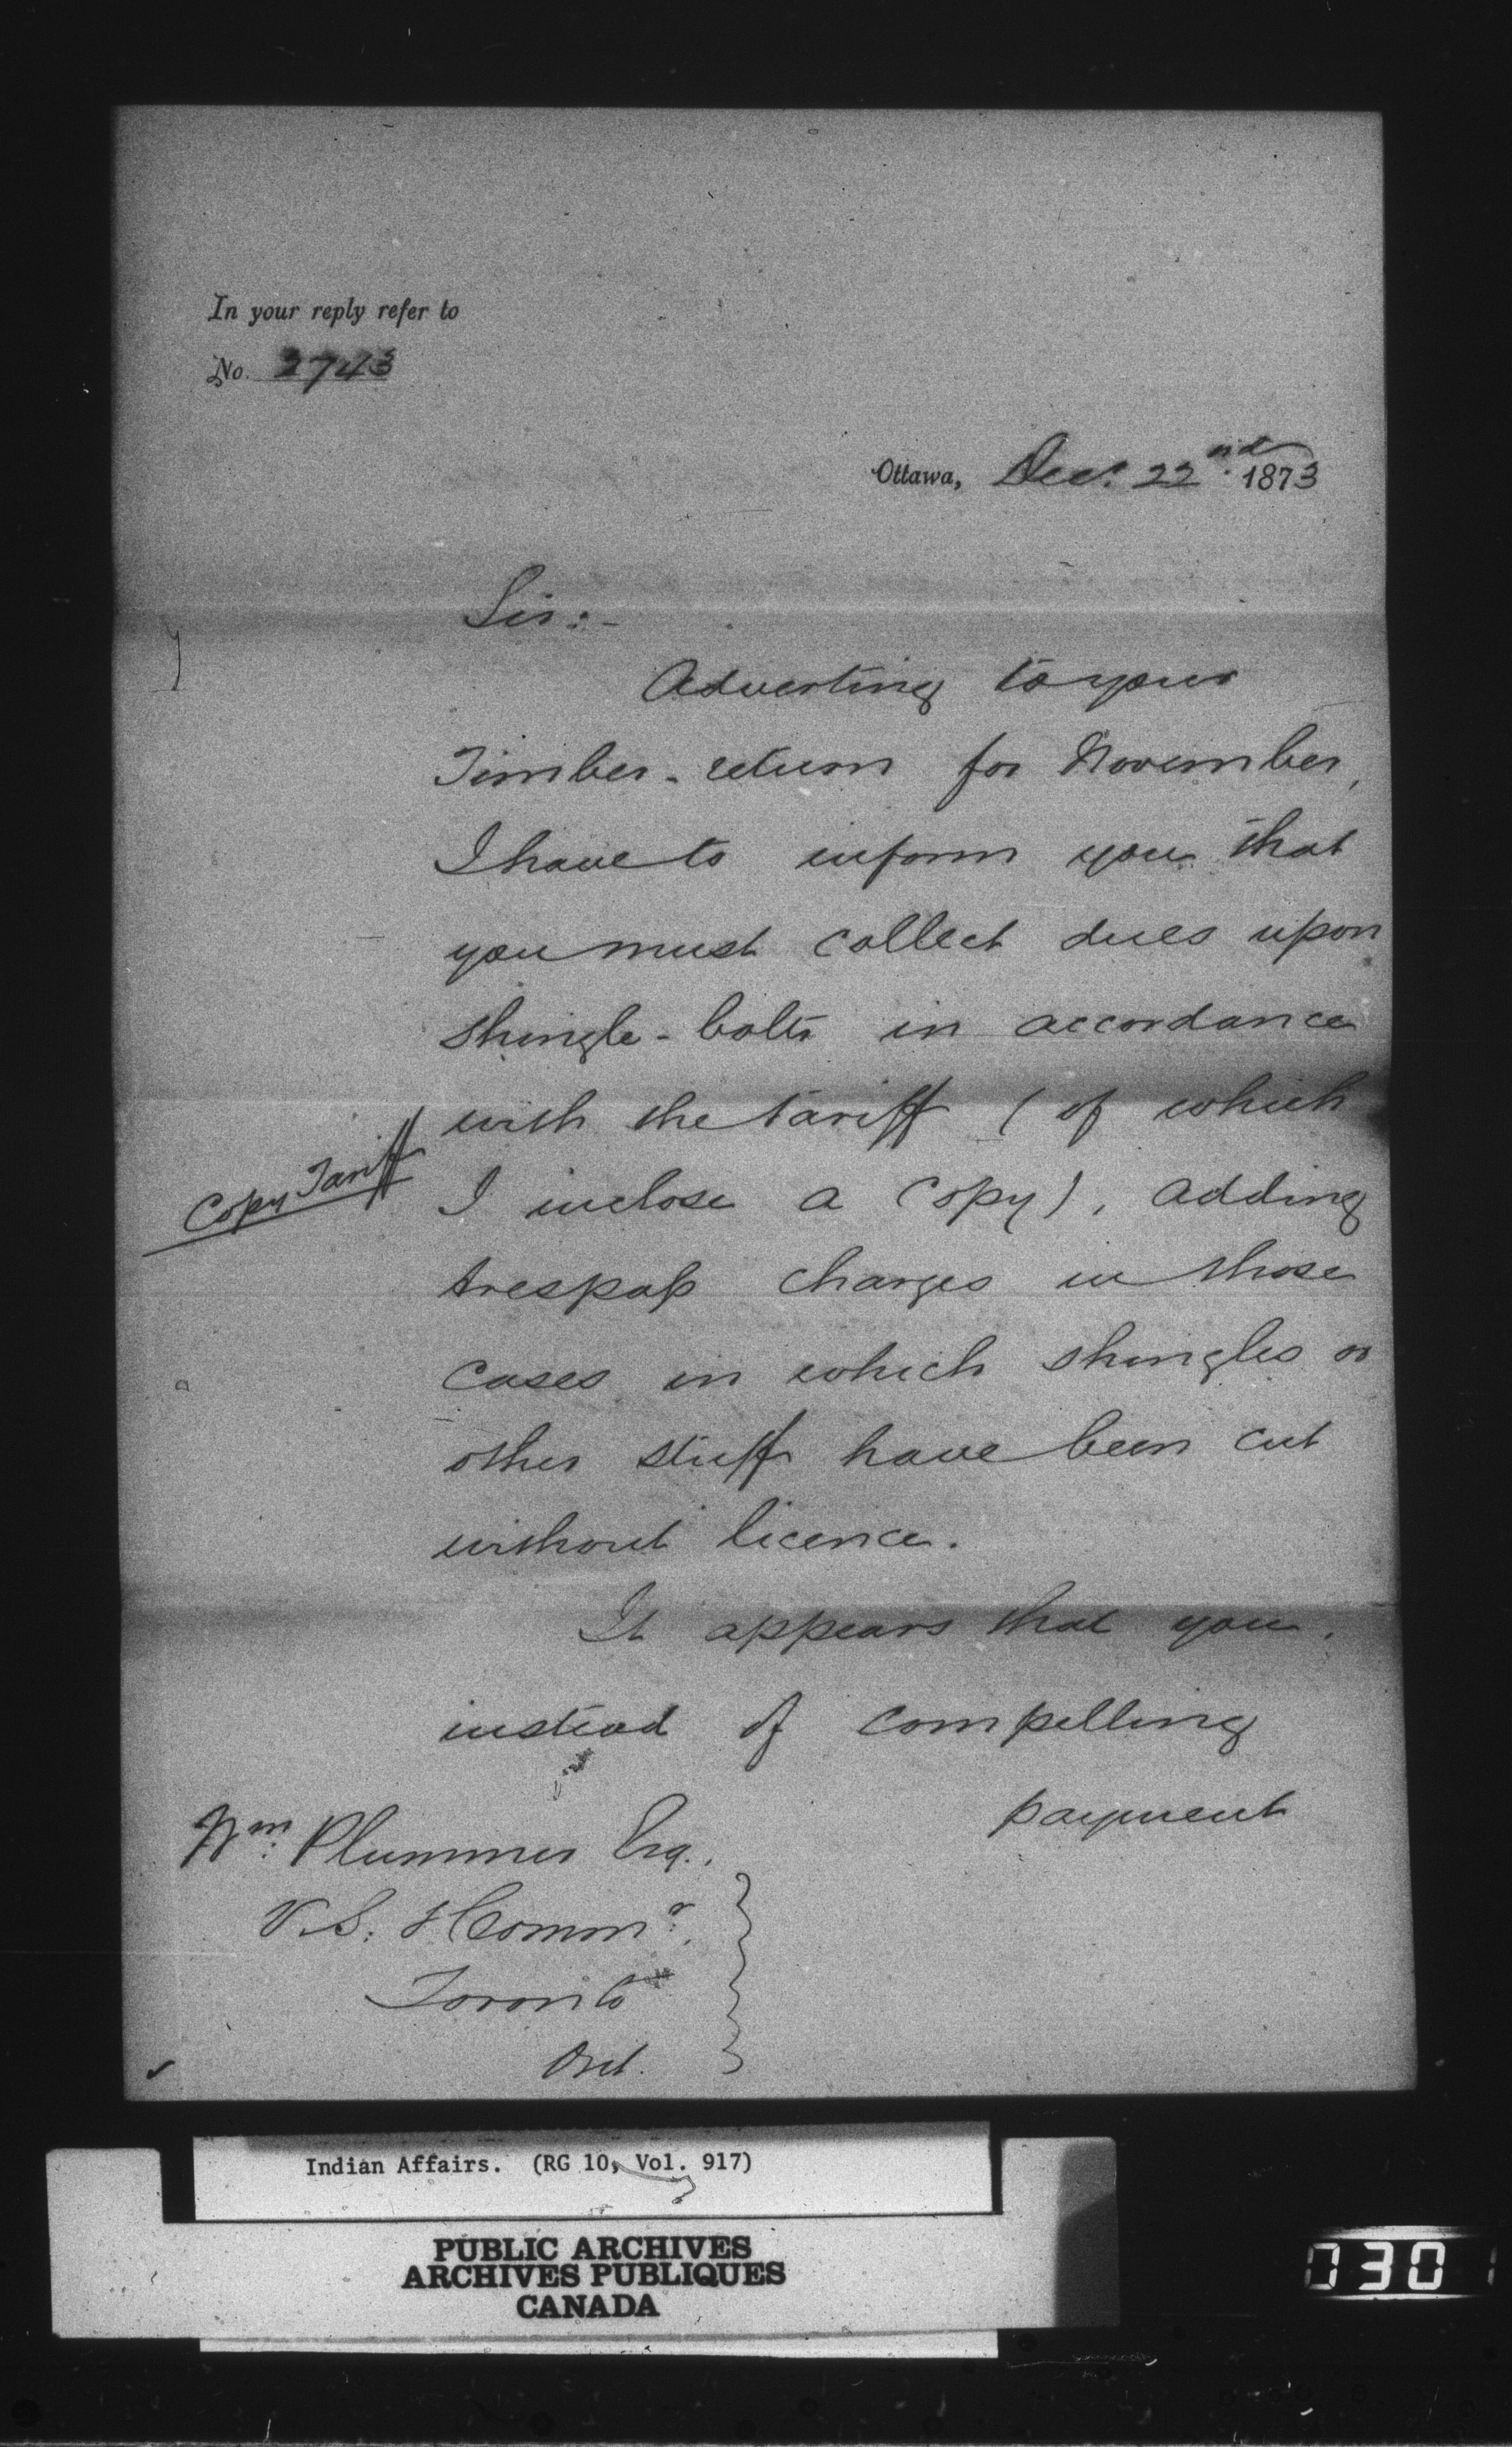 In your reply refer to
No. 2743
Ottawa, Decr. 22nd. 1873
Sir:-
Adverting to your
Timber-return for November,
I have to inform you that
you must collect dues upon
shingle-bolts in accordance
with the tariff (of which
Copy Tariff
I inclose a copy), adding
trespass charges in those
cases in which shingles or
other stuff have been cut
without licence.
It appears that you,
instead of compelling
payment
Wm. Plummer Esq.,
V.S. & Commr.
Toronto
Ont.
Indian Affairs. (RG 10, Vol. 917)
PUBLIC ARCHIVES
ARCHIVES PUBLIQUES
CANADA
0301